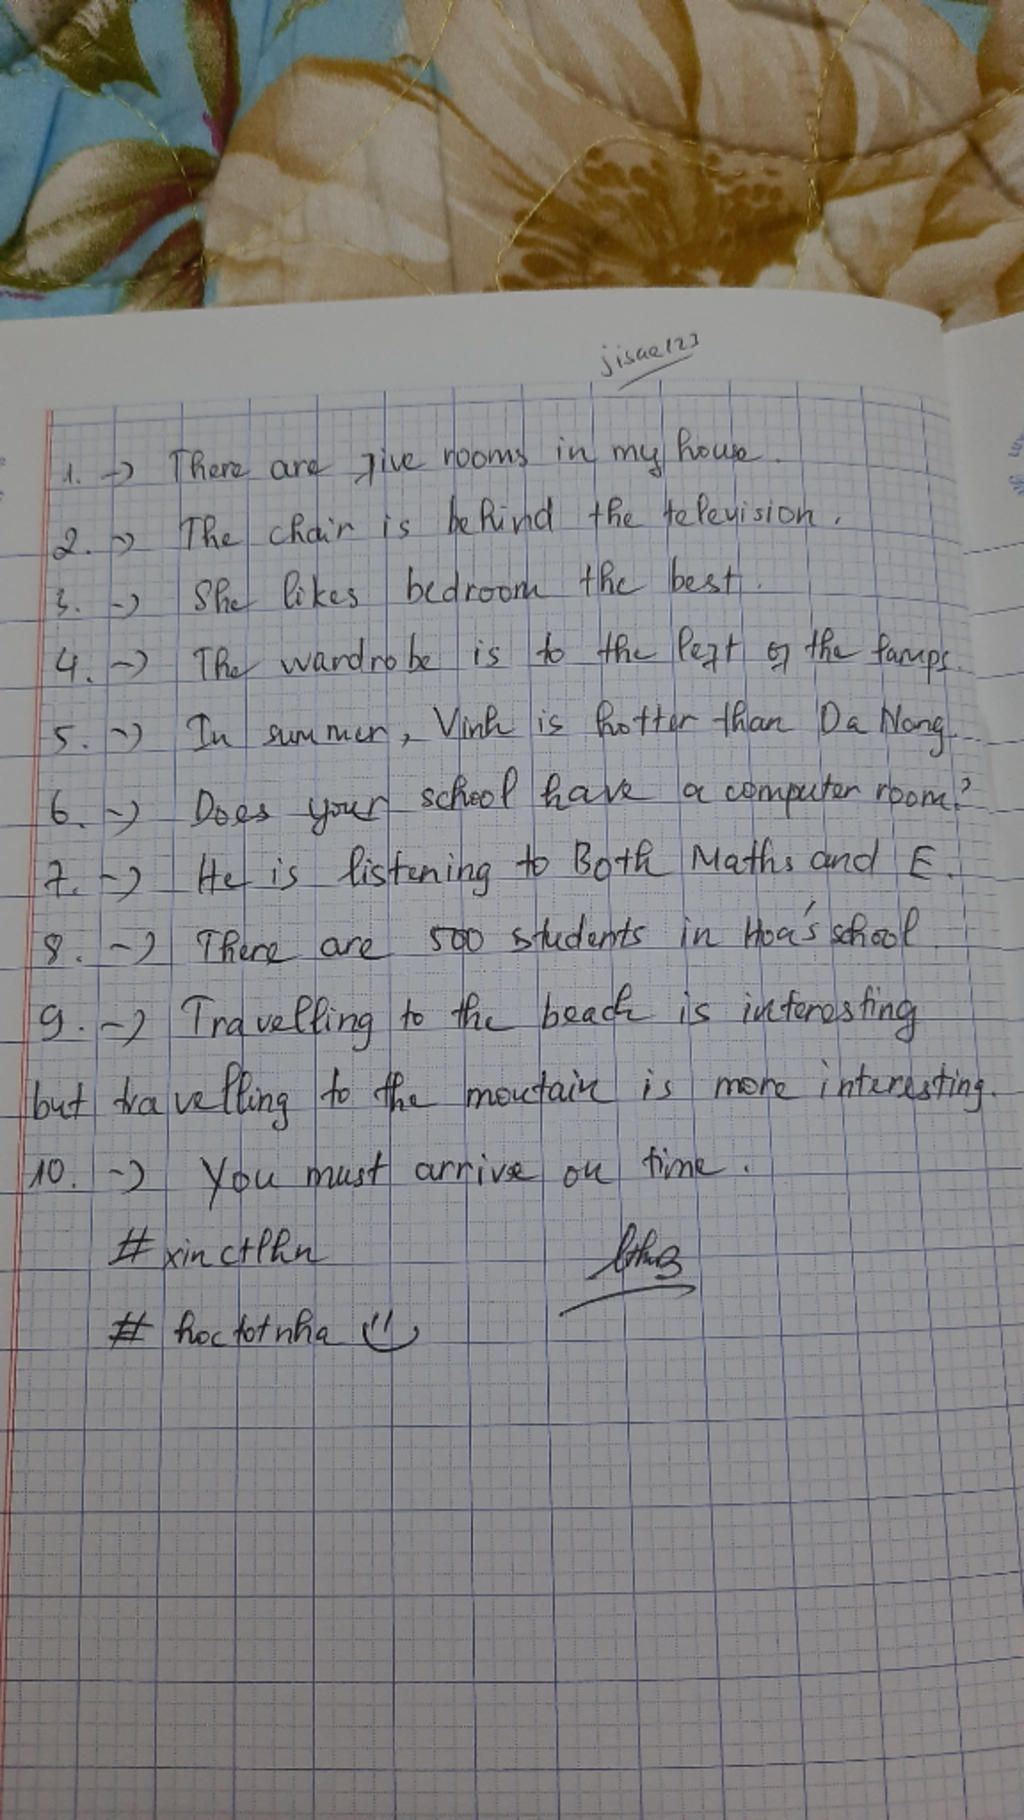 jisae123
1. -> There are five rooms in my house.
2. -> The chair is behind the television.
3. -> She likes bedroom the best.
4. -> The wardrobe is to the left of the lamps.
5. -> In summer, Vinh is hotter than Da Nang.
6. -> Does your school have a computer room?
7. -> He is listening to Both Maths and E.
8. -> There are 500 students in Hoa's school
9. -> Travelling to the beach is interesting
but travelling to the moutain is more interesting.
10. -> You must arrive on time.
# xinctlhn
# hoctotnha